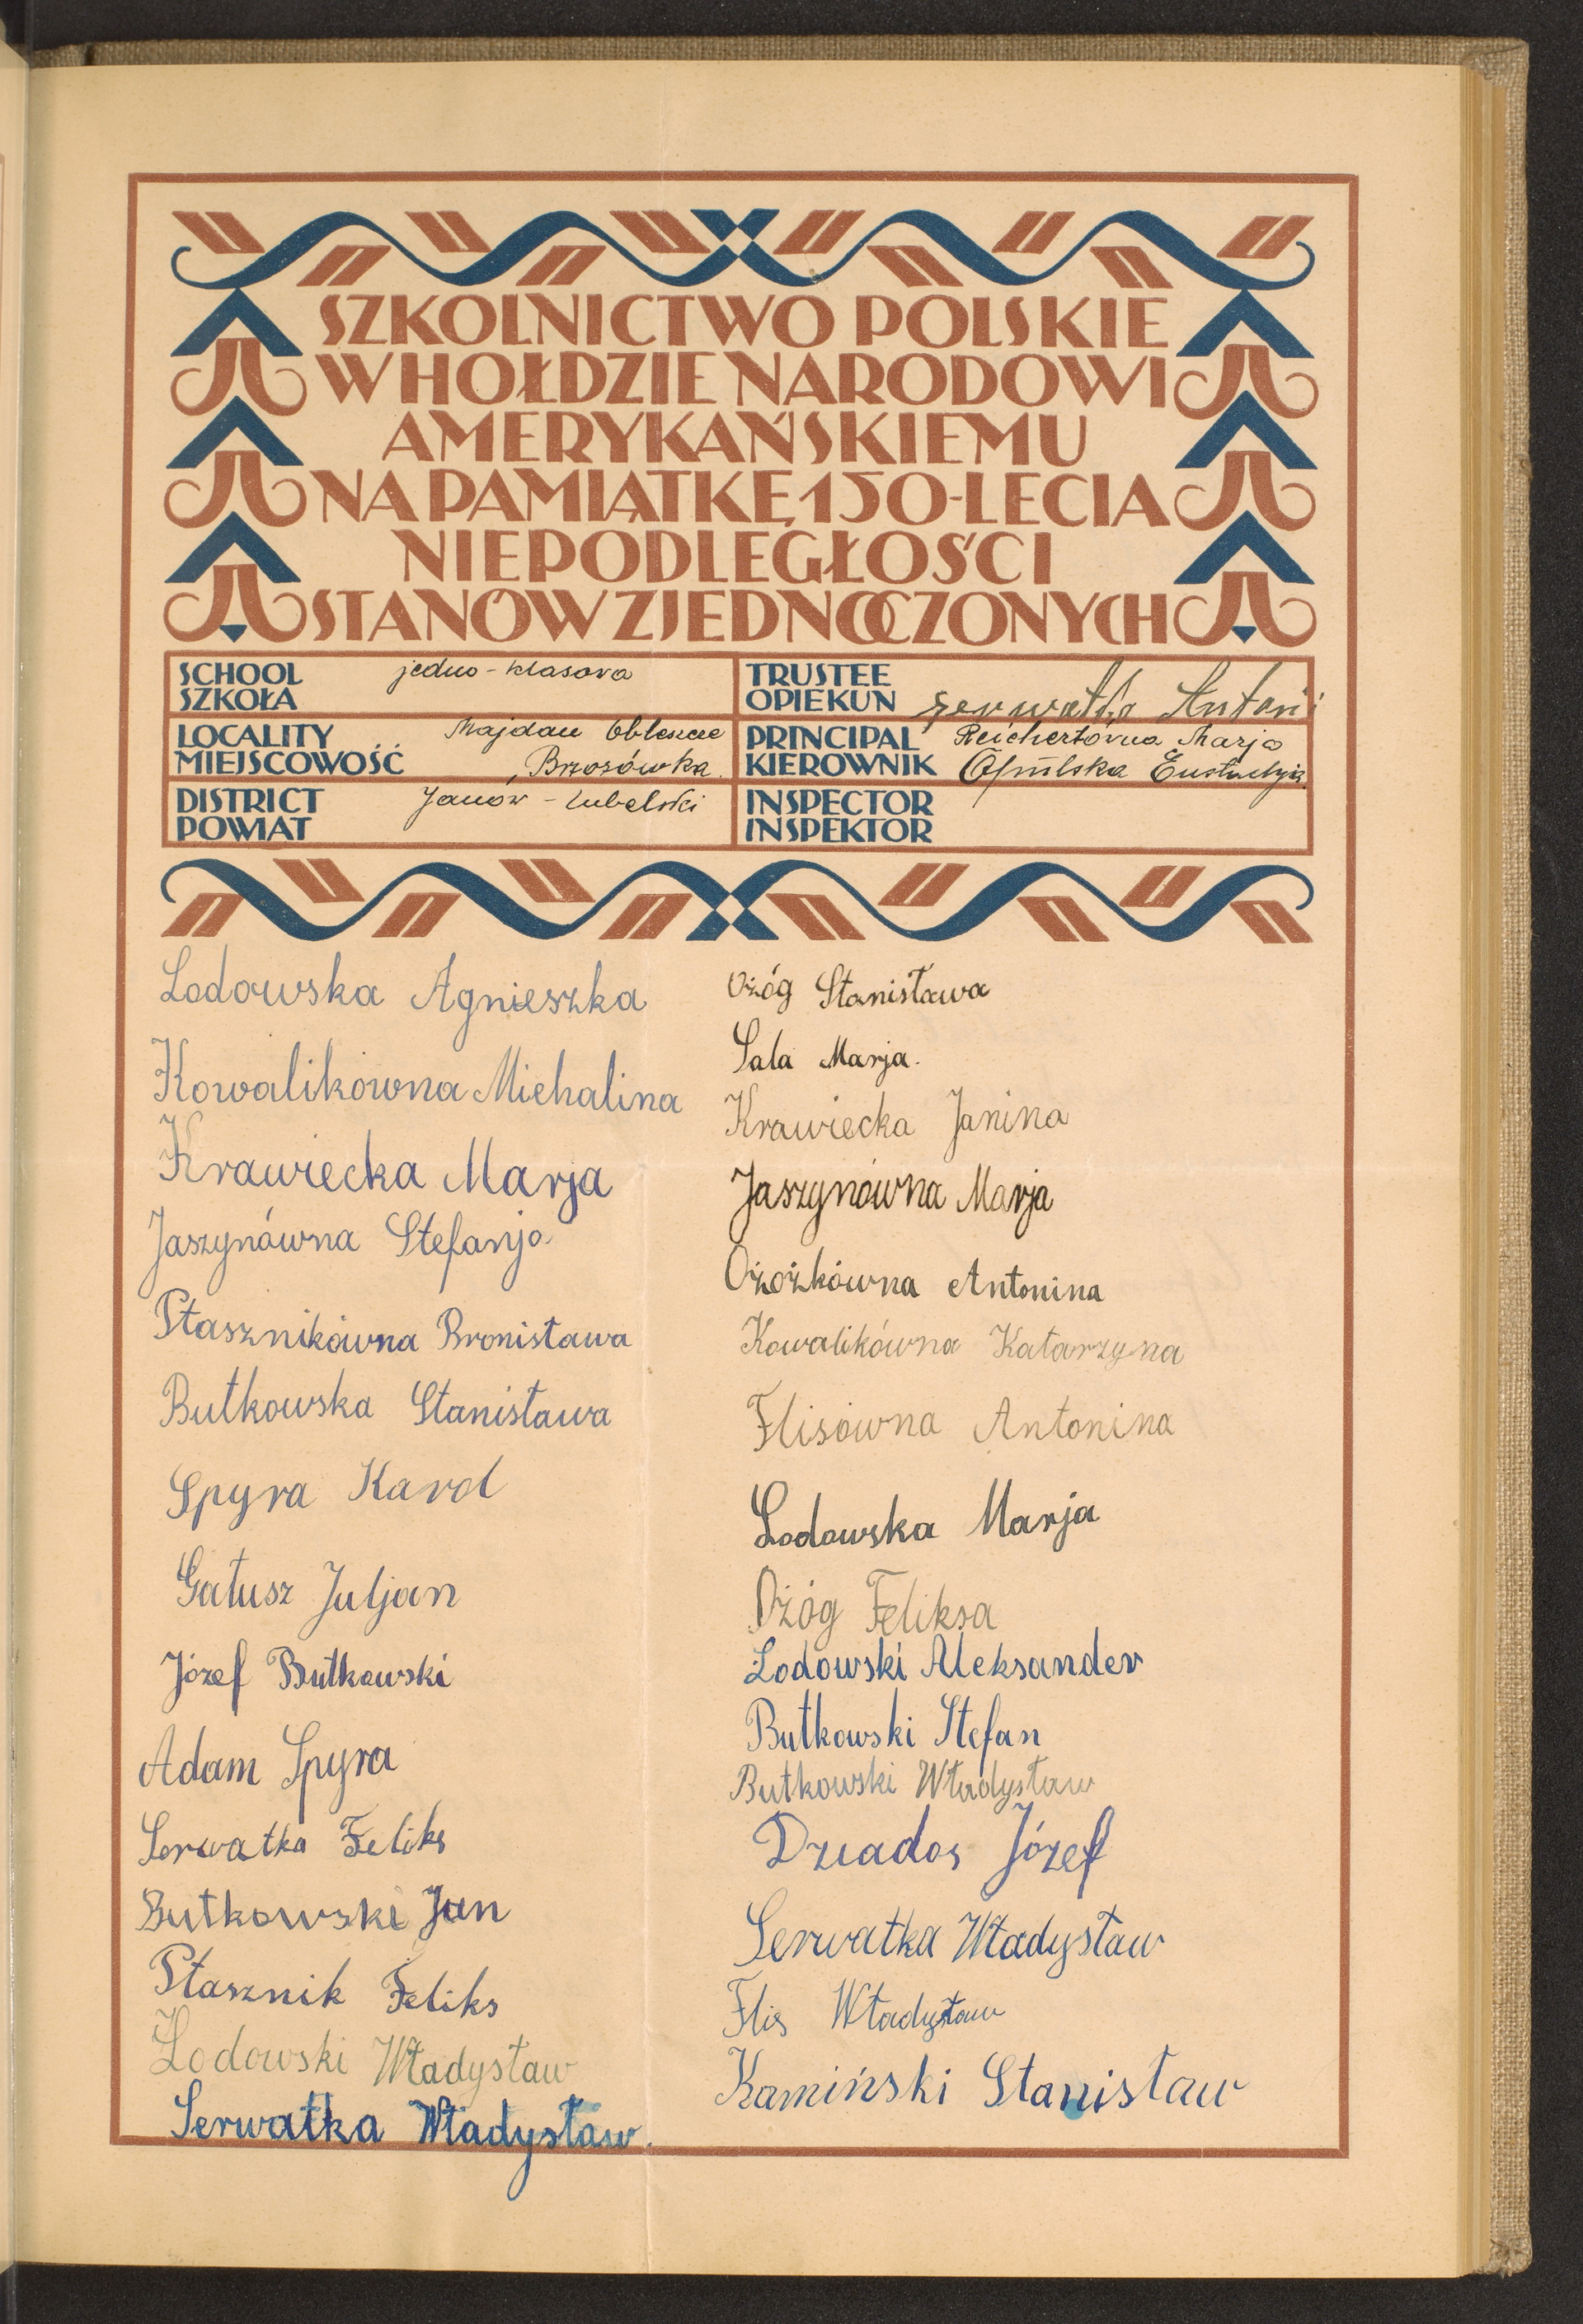 SZKOLNICTWO POLSKIE
W HOŁDZIE NARODOWI
AMERYKAŃSKIEMU
NA PAMIĄTKĘ 150-LECIA
NIEPODLEGŁOŚCI
STANÓW ZJEDNOCZONYCH
SCHOOL
SZKOŁA
jedno-klasowa
TRUSTEE
OPIEKUN
Serwatka Antoni
LOCALITY
MIEJSCOWOŚĆ
Majdan Obleszcze
Brzozówka
PRINCIPAL
KIEROWNIK
Reichertówna Marja
Opulska Eustachja
DISTRICT
POWIAT
Janów - Lubelski
INSPECTOR
INSPEKTOR
Lodowska Agnieszka
Kowalikówna Michalina
Krawiecka Marja
Jaszynówna Stefanja
Ptasznikówna Bronisława
Butkowska Stanisława
Spyra Karol
Gałusz Juljan
Józef Butkowski
Adam Spyra
Serwatka Feliks
Butkowski Jan
Ptasznik Feliks
Lodowski Władysław
Serwatka Władysław.
Ożóg Stanisława
Sala Marja.
Krawiecka Janina
Jaszynówna Marja
Ożożkówna Antonina
Kowalikówna Katarzyna
Flisówna Antonina
Lodowska Marja
Ożóg Feliksa
Lodowski Aleksander
Butkowski Stefan
Butkowski Władysław
Dziados Józef
Serwatka Władysław
Flis Władysław
Kamiński Stanisław